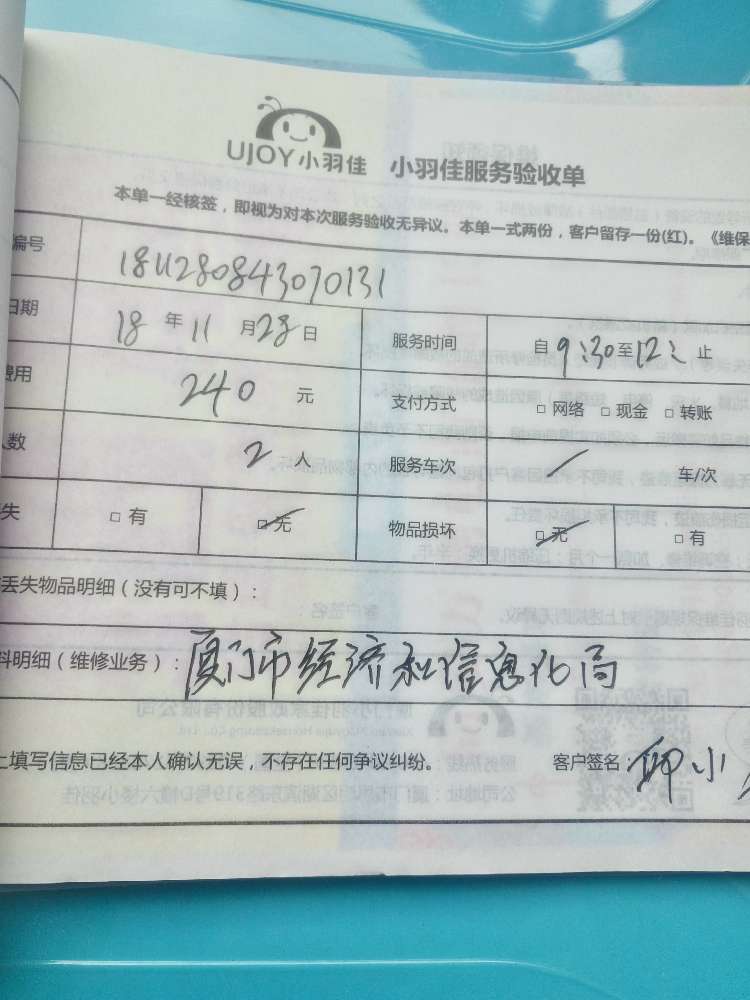 UJOY小羽佳 小羽佳服务验收单
本单一经核签，即视为对本次服务验收无异议。本单一式两份，客户留存一份(红)。《维保
编号 1811280843070131
日期 18 年 11 月 28 日 服务时间 自 9:30 至 12: 止
费用 240 元 支付方式 □ 网络 □ 现金 □ 转账
人数 2 人 服务车次 / 车/次
失 □ 有 □ 无 物品损坏 □ 无 □ 有
丢失物品明细（没有可不填）：
料明细（维修业务）：厦门市经济和信息化局
上填写信息已经本人确认无误，不存在任何争议纠纷。 客户签名： 小